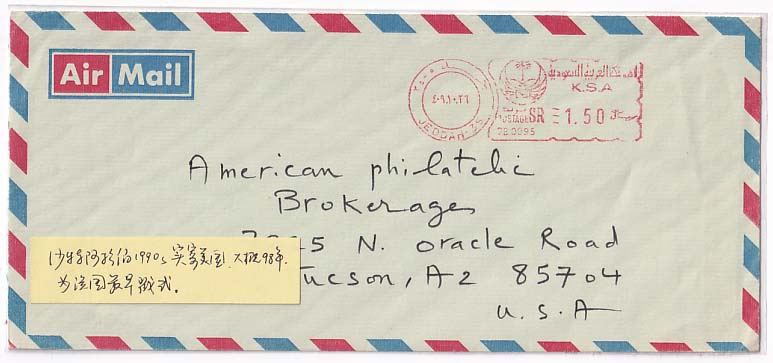 Air Mail
المملكة العربية السعودية
K.S.A
JEDDAH-25
POSTAGE SR 1.50
7B 0095
American philatelic
Brokerages
N. oracle Road
Tucson, AZ 85704
U.S.A
沙特阿拉伯1990s实寄美国,大概98年.
为该国最早戳式.